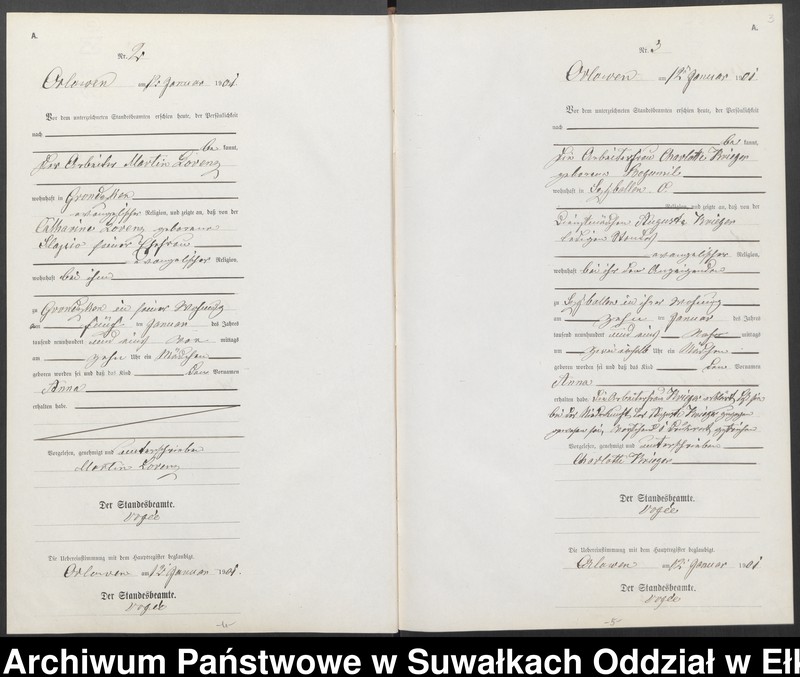 A.
Nr. 2
Orlowen am 12. Januar 1901.
Vor dem unterzeichneten Standesbeamten erschien heute, der Persönlichkeit
nach
be kannt,
der Arbeiter Martin Lorenz
wohnhaft in Grondzken
evangelischer Religion, und zeigte an, daß von der
Catharina Lorenz geborene
seiner Ehefrau
evangelischer Religion,
wohnhaft bei ihm
zu Grondzken in seiner Wohnung
am fünf ten Januar des Jahres
tausend neunhundert und eins Vor mittags
um zehn Uhr ein Mädchen
geboren worden sei und daß das Kind den Vornamen
Anna
erhalten habe.
Vorgelesen, genehmigt und unterschrieben
Martin Lorenz
Der Standesbeamte.
Vogée
Die Uebereinstimmung mit dem Hauptregister beglaubigt.
Orlowen am 12. Januar 1901.
Der Standesbeamte.
Vogée
-4-
3
A.
Nr. 3
Orlowen am 12. Januar 1901.
Vor dem unterzeichneten Standesbeamten erschien heute, der Persönlichkeit
nach
be kannt,
die Arbeiterfrau Charlotte Krieger
geborene Bogumil
wohnhaft in
Religion, und zeigte an, daß von der
Dienstmädchen Auguste Krieger
ledigen Standes
evangelischer Religion,
wohnhaft bei ihr der Anzeigenden
zu in ihrer Wohnung
am zehn ten Januar des Jahres
tausend neunhundert und eins Nach mittags
um Uhr ein Mädchen
geboren worden sei und daß das Kind den Vornamen
Anna
erhalten habe. Die Arbeiterfrau Krieger erklärt, daß sie
bei der Niederkunft der Auguste Krieger zugegen
gewesen sei. Vorstehend 1 Druckwort gestrichen
Vorgelesen, genehmigt und unterschrieben
Charlotte Krieger
Der Standesbeamte.
Vogée
Die Uebereinstimmung mit dem Hauptregister beglaubigt.
Orlowen am 12. Januar 1901
Der Standesbeamte.
Vogée
-5-
Archiwum Państwowe w Suwałkach Oddział w Eł